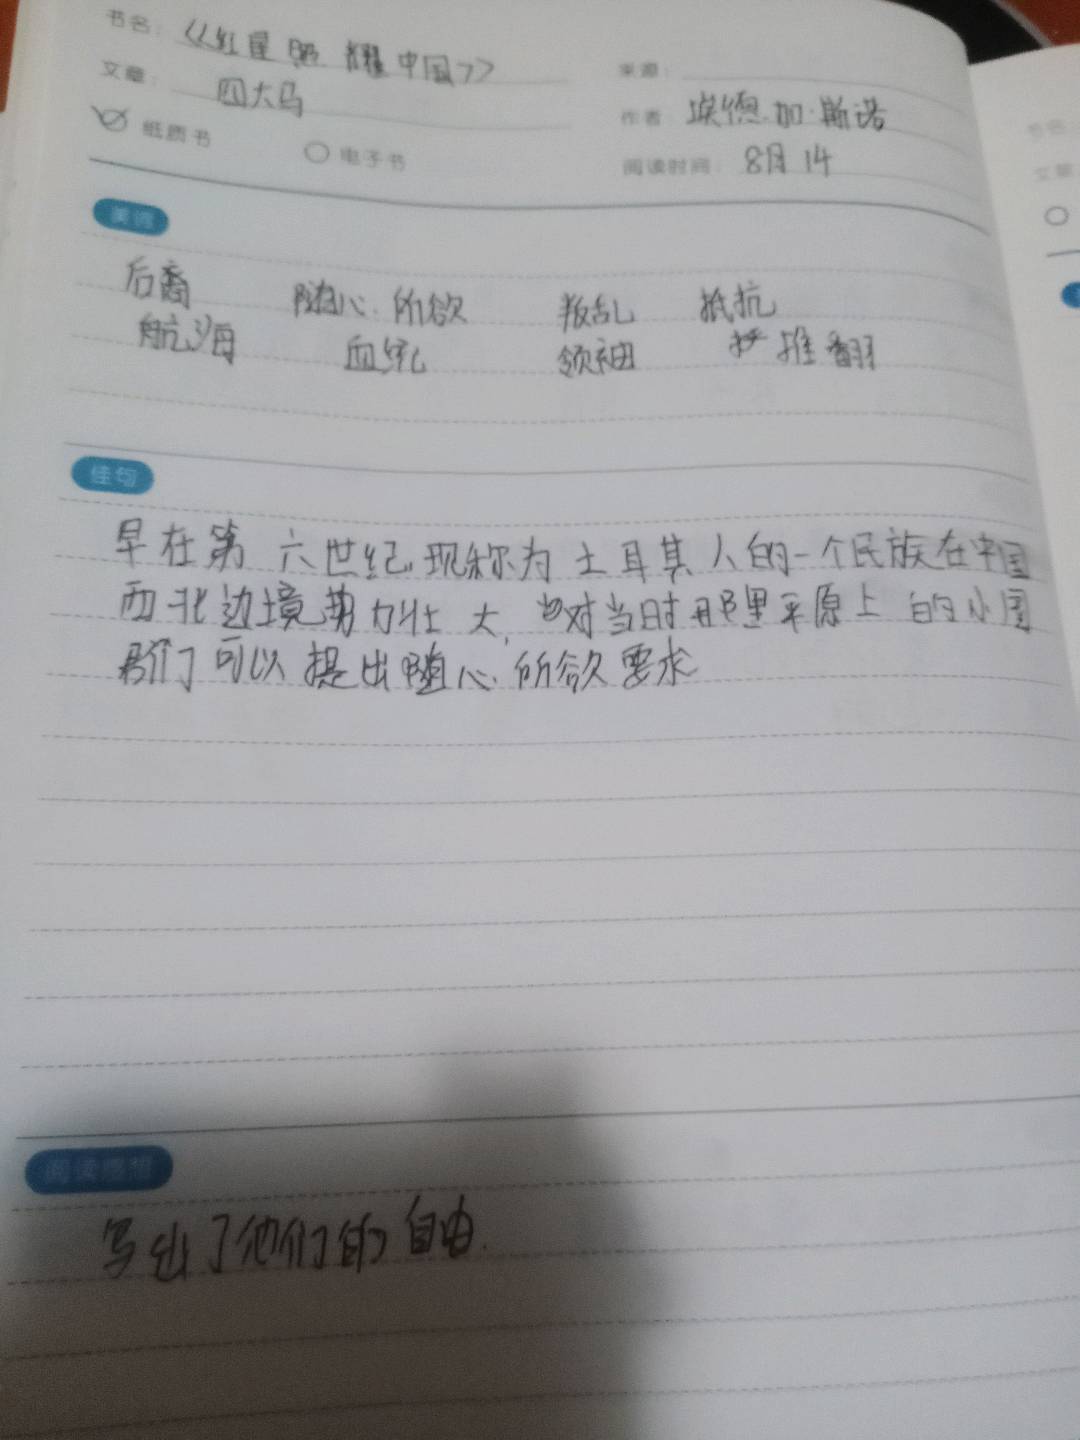 书名：《红星照耀中国》
来源：
文章：四大马
作者 埃德加·斯诺
纸质书 电子书
阅读时间：8月14
美词
后裔 随心所欲 叛乱 抵抗
航海 血统 领袖 推翻
佳句
早在第六世纪,现称为土耳其人的一个民族在中国
西北边境势力壮大，也对当时那里平原上的小国
君们可以提出随心所欲要求
阅读感想
写出了他们的自由.